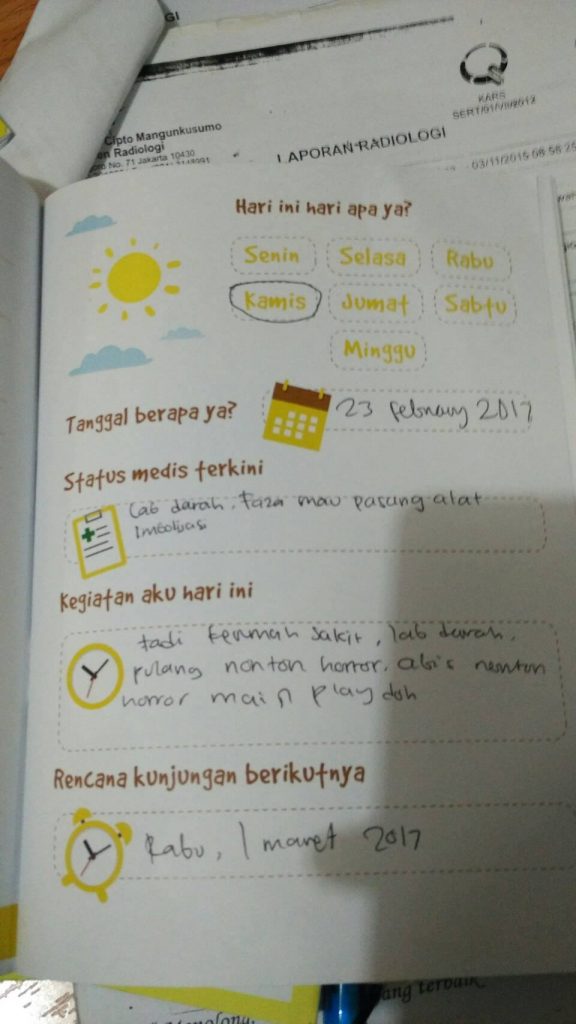 GI
KARS
SERT/01/VII/2012
Cipto Mangunkusumo
en Radiologi
No. 71 Jakarta 10430
LAPORAN RADIOLOGI
03/11/2015 08:58:25
Hari ini hari apa ya?
Senin Selasa Rabu
Kamis Jumat Sabtu
Minggu
Tanggal berapa ya? 23 februari 2017
Status medis terkini
Lab darah. Faza mau pasang alat
Imbolisasi
Kegiatan aku hari ini
tadi kerumah sakit, lab darah,
pulang nonton horror. abis nonton
horror main play doh
Rencana kunjungan berikutnya
Rabu, 1 maret 2017
ang terbaik